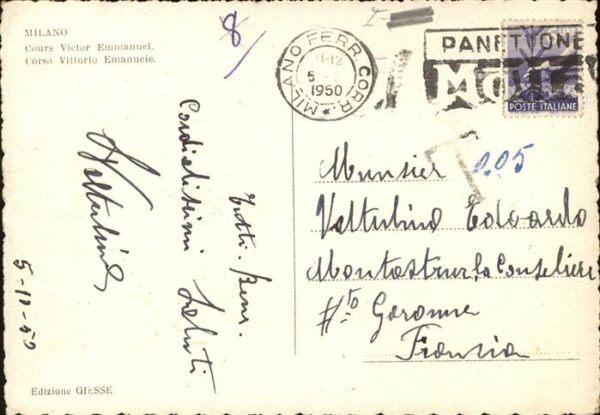 MILANO
Cours Victor Emmanuel.
Corso Vittorio Emanuele.
8/
MILANO FERR. CORR.
11-12
5
1950
PANETTONE
MO
POSTE ITALIANE
T
0.05
Munsier
Valtulina Edoardo
Montastruc la Conseliere
Hto Garonne
Francia
Tutti. bene.
Cordialissimi Saluti
Valtulina
5-12-50
Edizione GIESSE